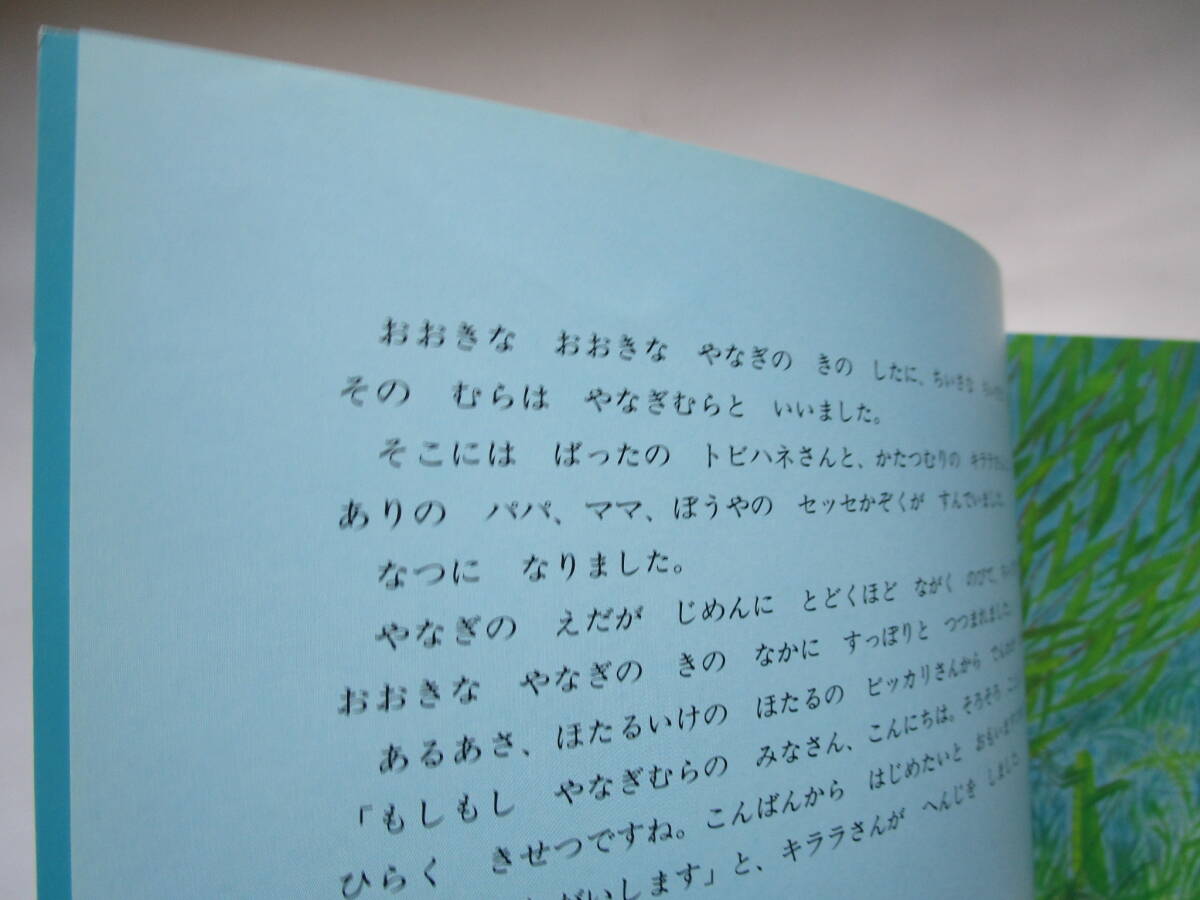 おおきな　おおきな　やなぎの　きの　したに、ちいさな
その　むらは　やなぎむらと　いいました。
そこには　ばったの　トビハネさんと、かたつむりの　キララさん
ありの　パパ、ママ、ぼうやの　セッセかぞくが　すんでいました。
なつに　なりました。
やなぎの　えだが　じめんに　とどくほど　ながく　のびて、
おおきな　やなぎの　きの　なかに　すっぽりと　つつまれました。
あるあさ、ほたるいけの　ほたるの　ピッカリさんから　でんわが
「もしもし　やなぎむらの　みなさん、こんにちは。そろそろ
ひらく　きせつですね。こんばんから　はじめたいと　おもいます
がいします」と、キララさんが　へんじを　しました。